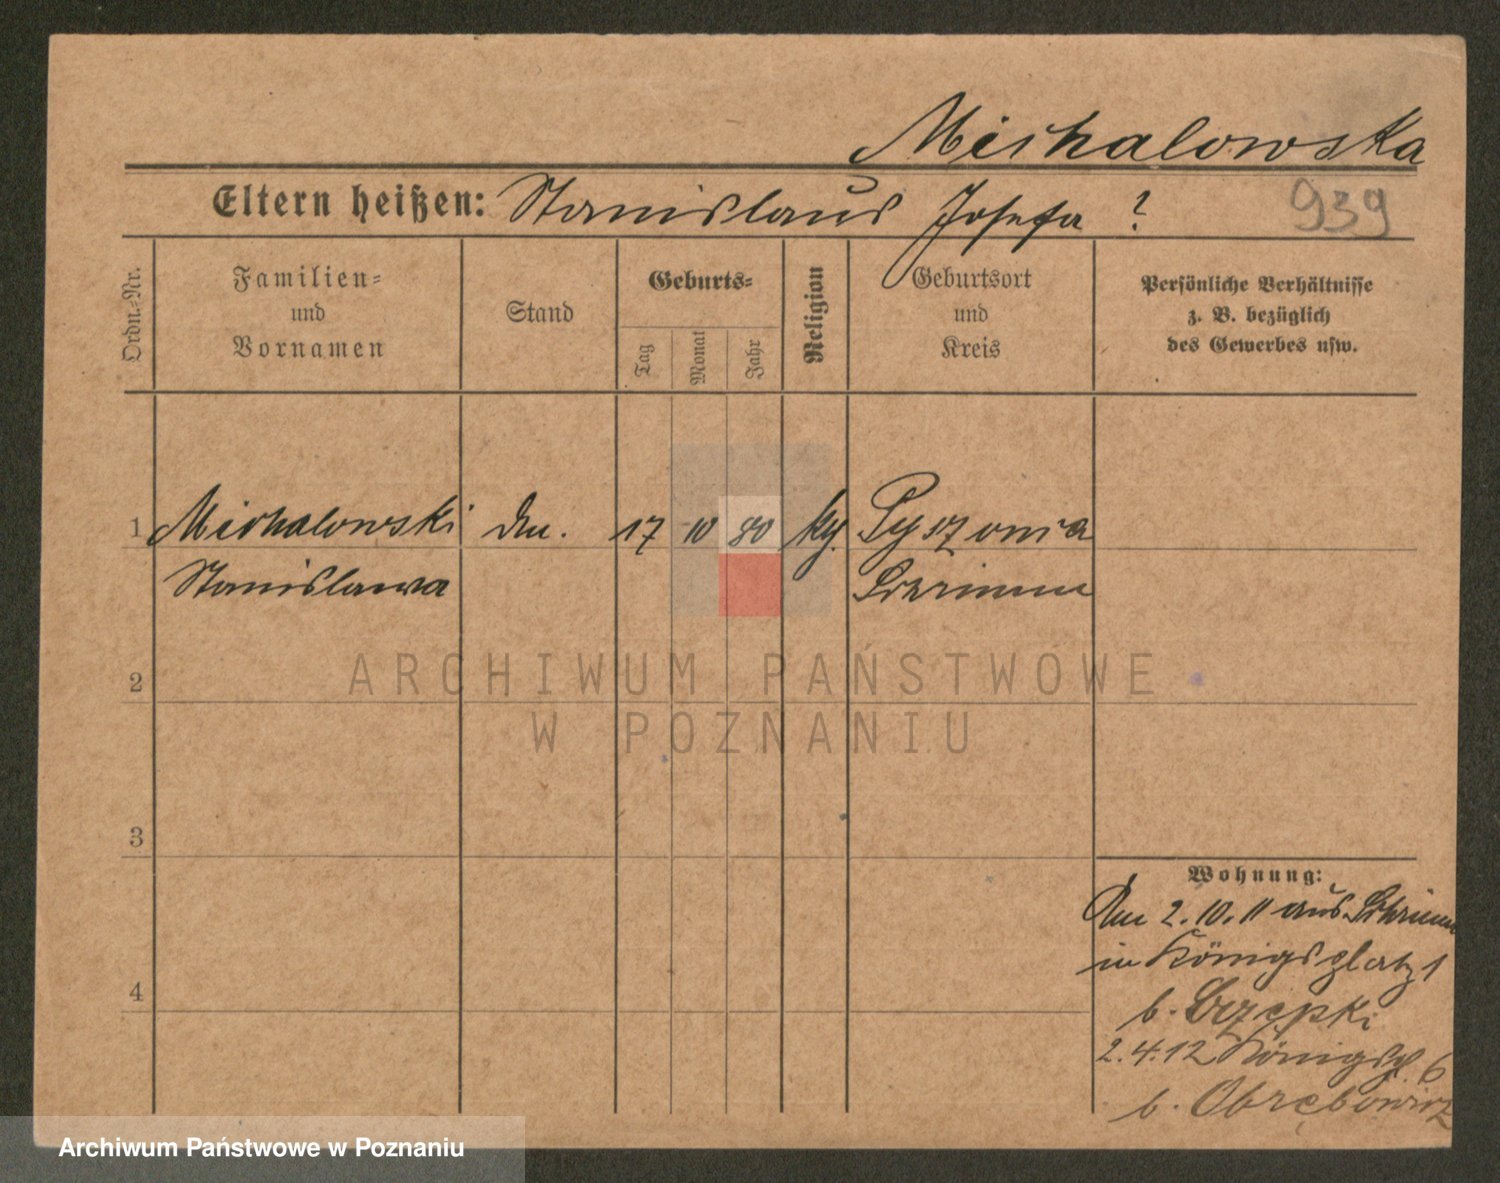 Michalowska
Eltern heißen: Stanislaus Josefa ?
939
Ordn.=Nr.
Familien=
und
Vornamen
Stand
Geburts=
Tag
Monat
Jahr
Religion
Geburtsort
und
Kreis
Persönliche Verhältnisse
z. B. bezüglich
des Gewerbes usw.
1 Michalowski 17 10 80 Pyszonia
Stanislawa Schrimm
ARCHIWUM PAŃSTWOWE
2
W POZNANIU
3
Wohnung:
Am 2.10.11 aus Schrimm
in Königsplatz 1
4
b. Krzepki
2.4.12 Königspl. 6
b. Obrębowicz
Archiwum Państwowe w Poznaniu